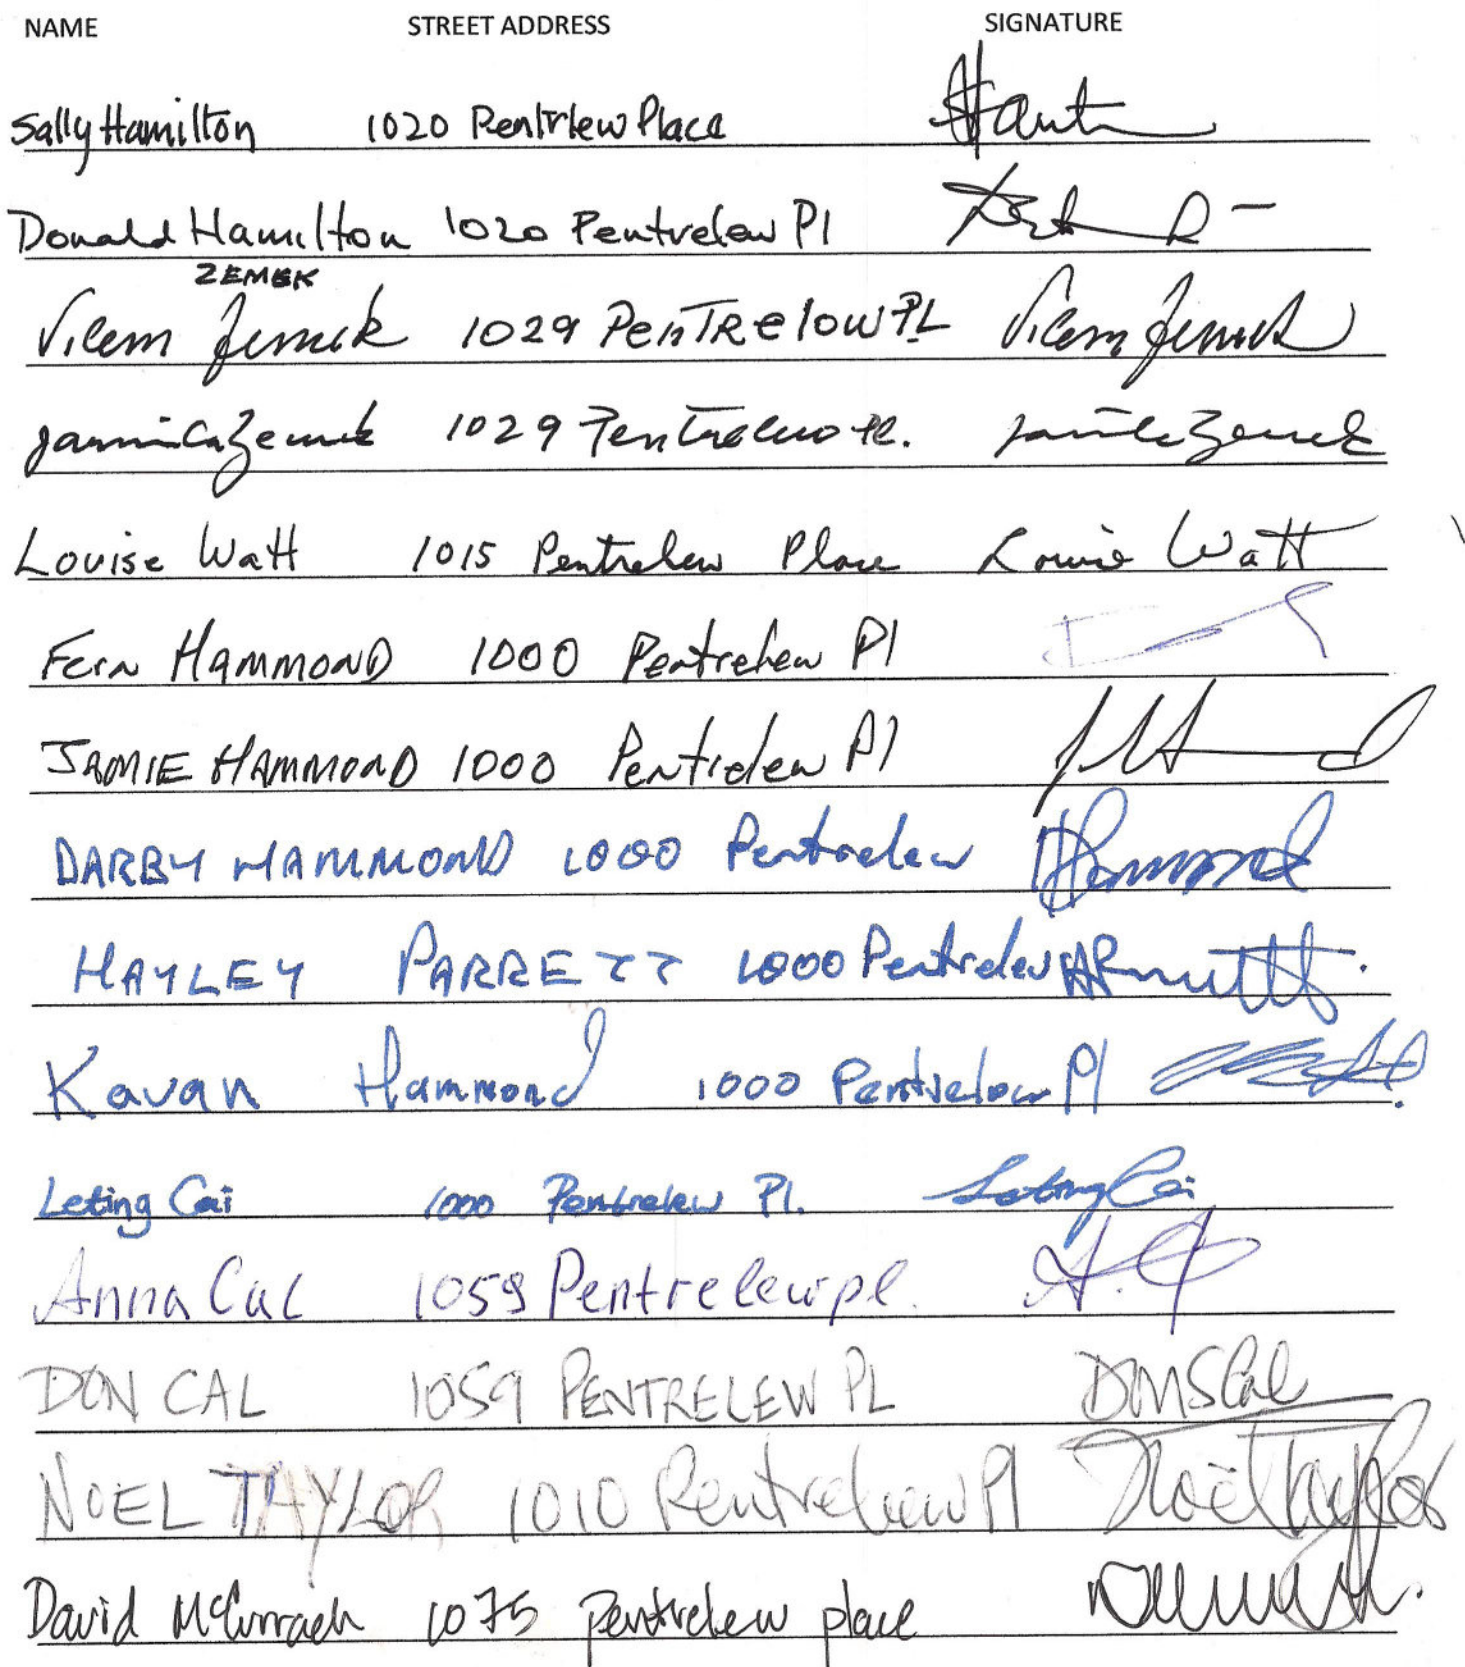 NAME STREET ADDRESS SIGNATURE
Sally Hamilton 1020 Pentrelew Place
Donald Hamilton 1020 Pentrelew Pl
ZEMEK
Vilem Zemek 1029 PenTRelow PL Vilem Zemek
Zemek 1029 Pentrelew Pl. Zemek
Louise Watt 1015 Pentrelew Place Louise Watt
Fern HAMMOND 1000 Pentrelew Pl
JAMIE HAMMOND 1000 Pentrelew Pl
DARBY HAMMOND 1000 Pentrelew Hammond
HAYLEY PARRETT 1000 Pentrelew
Kavan Hammond 1000 Pentrelew Pl
Leting Cai 1000 Pentrelew Pl. Leting Cai
Anna Cal 1059 Pentrelew pl.
DON CAL 1059 PENTRELEW PL Don S Cal
NOEL TAYLOR 1010 Pentrelew Pl Noel Taylor
David McCurrach 1075 pentrelew place